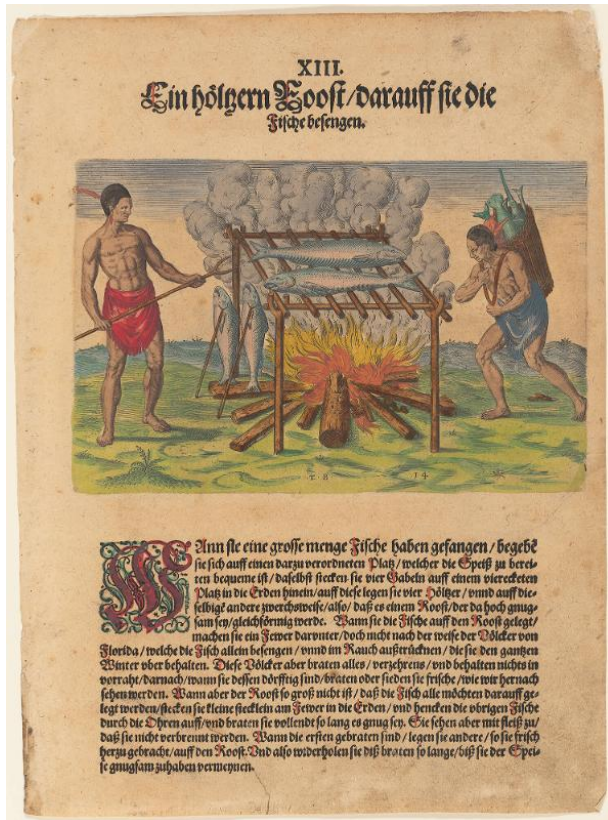 XIII.
Ein höltzern Roost/darauff sie die
Fische besengen.
T. B. 14
WAnn sie eine grosse menge Fische haben gefangen/begebē
sie sich auff einen darzu verordneten Platz/welcher die Speiß zu berei-
ten bequeme ist/daselbst stecken sie vier Gabeln auff einem viereckten
Platz in die Erden hinein/auff diese legen sie vier Höltzer/vnnd auff die-
selbige andere zwerchsweise/also/daß es einem Roost/der da hoch gnug-
sam sey/gleichförmig werde. Wann sie die Fische auff den Roost gelegt/
machen sie ein Fewer darunter/doch nicht nach der weise der Völcker von
Florida/welche die Fisch allein besengen/vnnd im Rauch außtrücknen/die sie den gantzen
Winter vber behalten. Diese Völcker aber braten alles/verzehrens/vnd behalten nichts in
vorraht/darnach/wann sie dessen dörfftig sind/braten oder sieden sie frische/wie wir hernach
sehen werden. Wann aber der Roost so groß nicht ist/daß die Fisch alle möchten darauff ge-
legt werden/stecken sie kleine stecklein am Fewer in die Erden/vnd hencken die vbrigen Fische
durch die Ohren auff/vnd braten sie vollendt so lang es gnug sey. Sie sehen aber mit fleiß zu/
daß sie nicht verbrennt werden. Wann die ersten gebraten sind/legen sie andere/so sie frisch
herzu gebracht/auff den Roost. Vnd also widerholen sie diß braten so lange/biß sie der Spei-
se gnugsam zuhaben vermeynen.